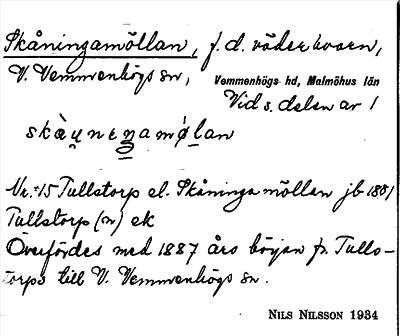 Skåningamöllan, f.d. väderkvarn,
V. Vemmenhögs sn, Vemmenhögs hd, Malmöhus län
Vid s. delen av l
skὰu̯neŋamǿlan
Nr. 15 Tullstorp el. Skåningamöllan jb 1881
Tullstorp (m) ek
Överfördes med 1887 års början fr. Tulls-
torps till V. Vemmenhögs sn.
NILS NILSSON 1934